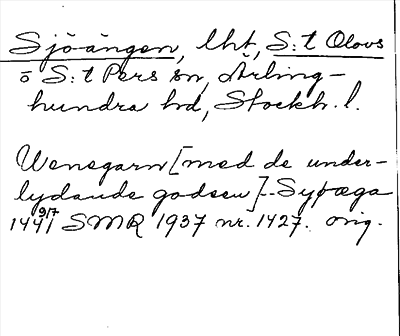 Sjö-ängen, lht, S:t Olovs
o S:t Pers sn, Ärling-
hundra hd, Stockh. l.
Wenegarn [med de under-
lydande godsen]-- Syþæga
1441 9/7 SMR 1937 nr. 1427. orig.